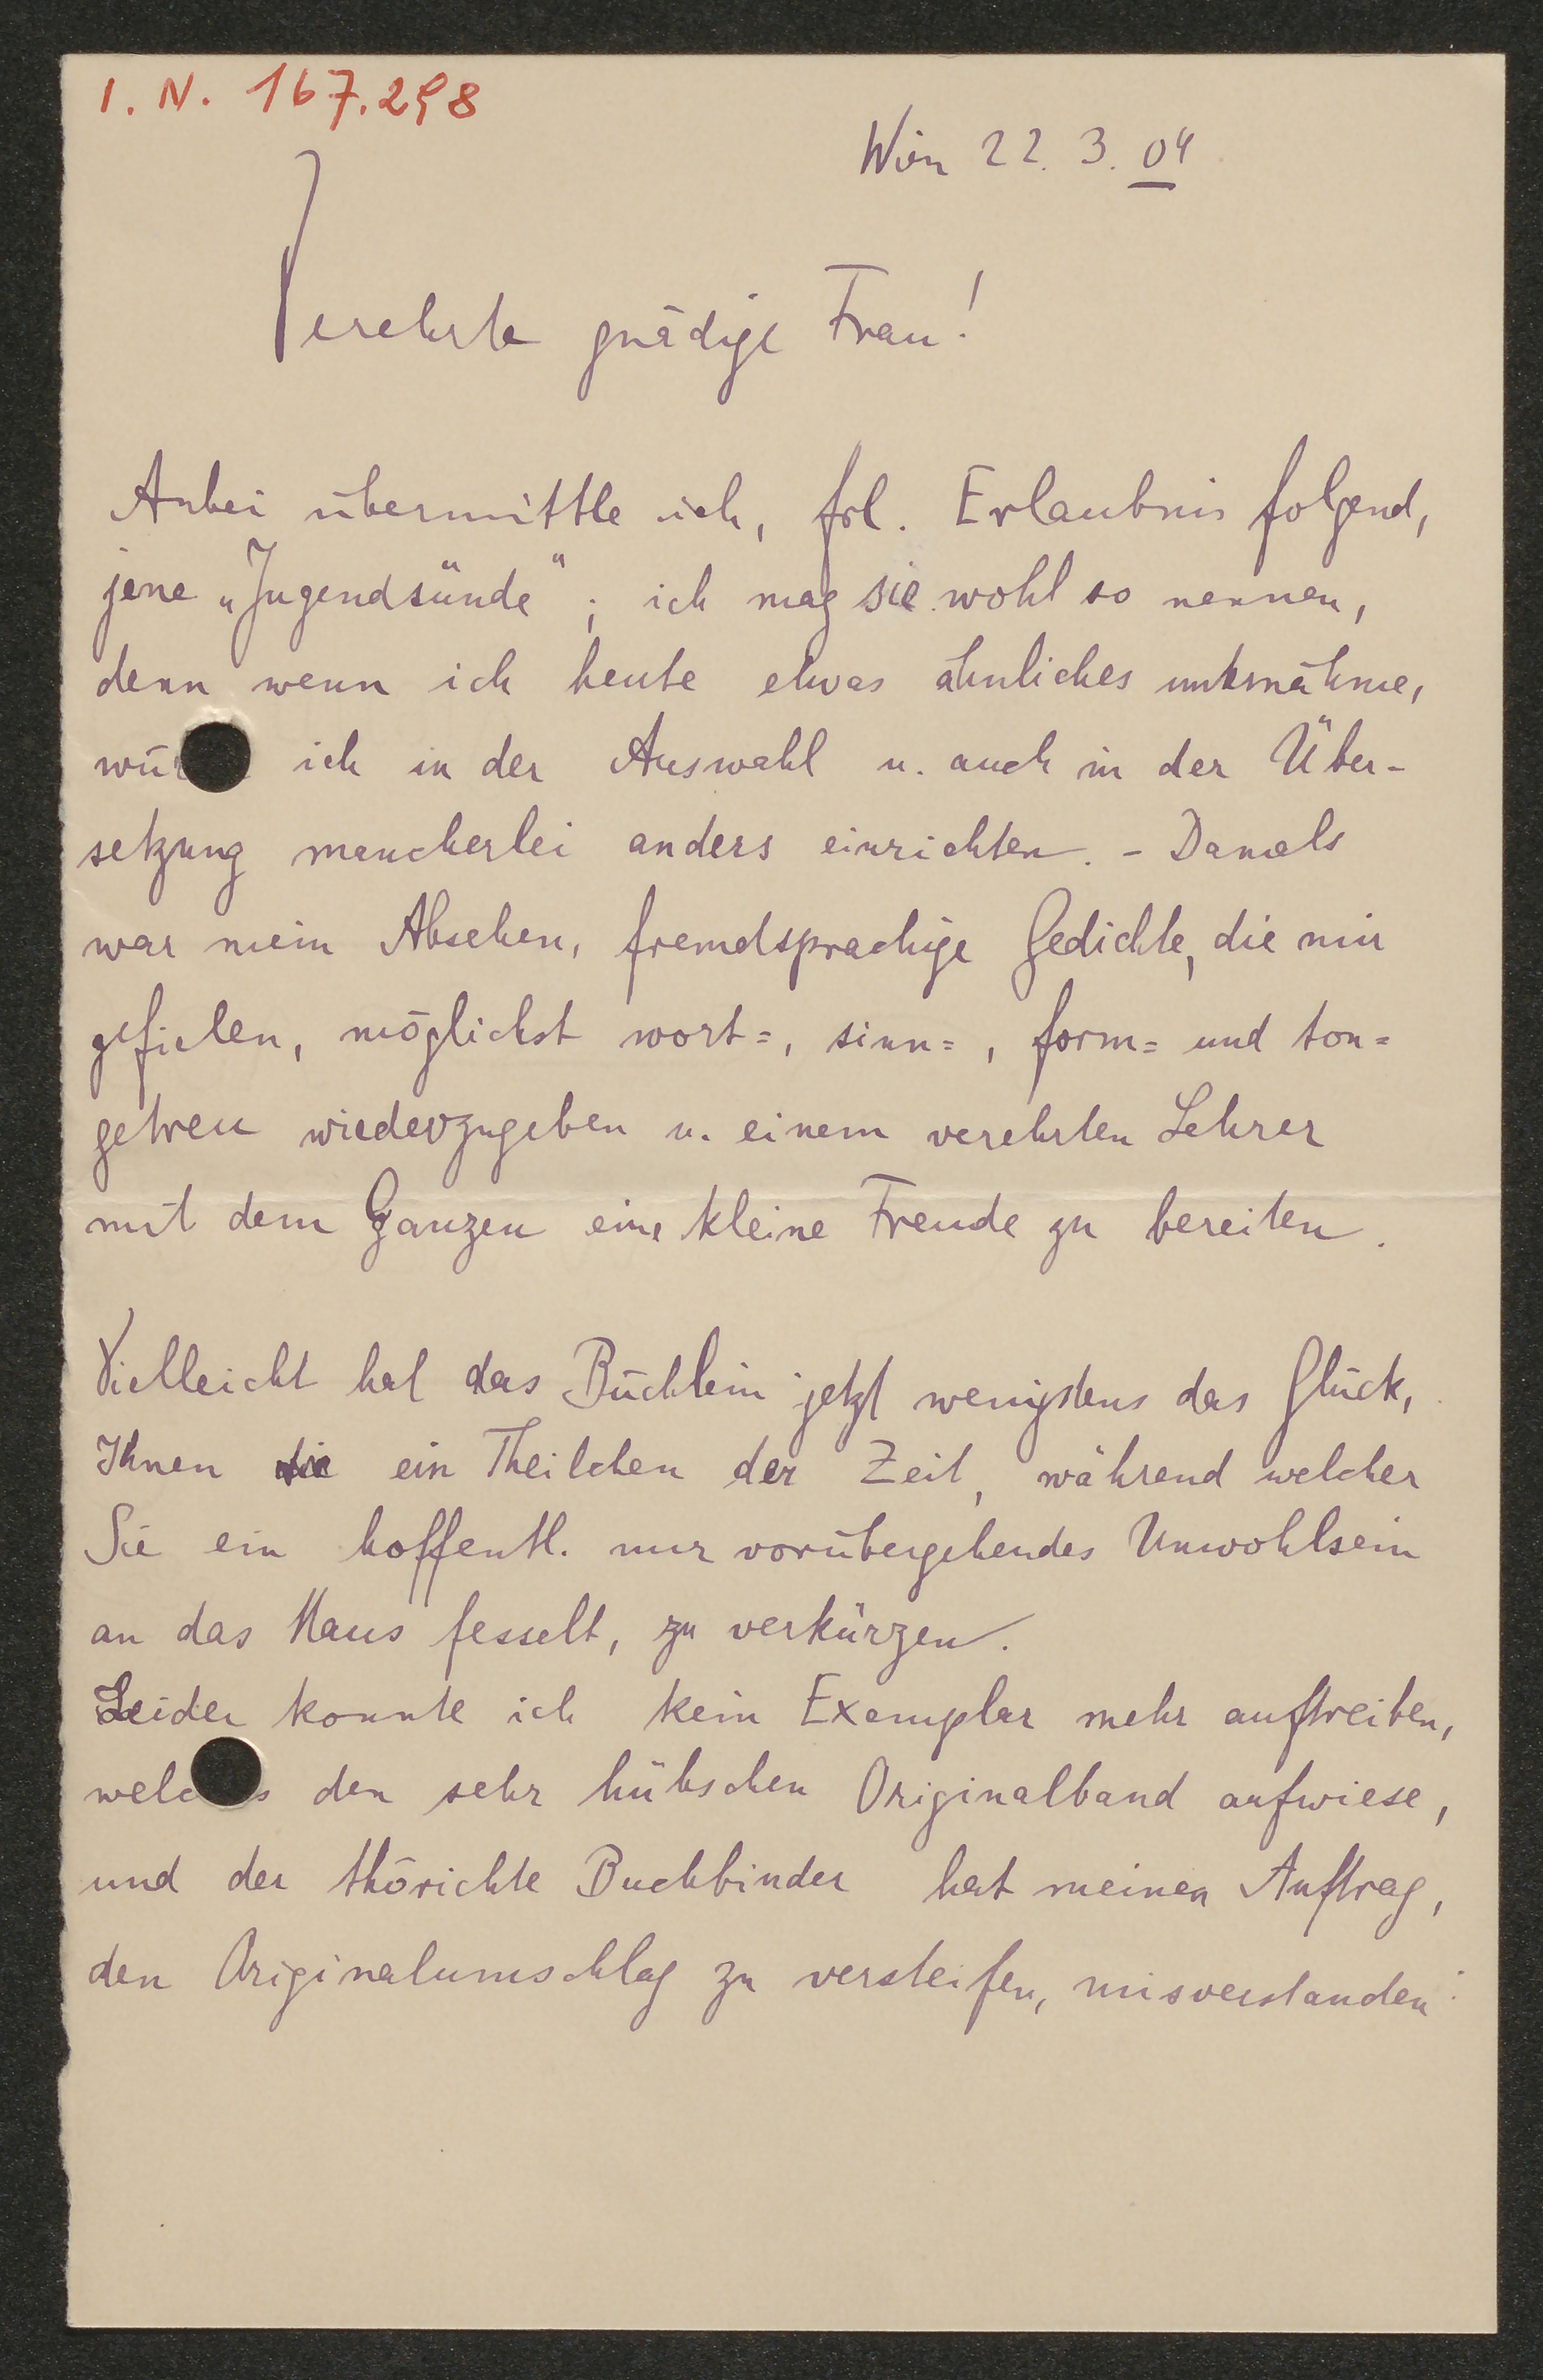 I. N. 167.298
Wien 22. 3. 04
Verehrte gnädige Frau!
Anbei übermittle ich, frl. Erlaubnis folgend,
jene „Jugendsünde“; ich mag sie wohl so nennen,
denn wenn ich heute etwas ähnliches unternähme,
wü ich in der Auswahl u. auch in der Über-
setzung mancherlei anders einrichten. – Damals
war mein Absehen, fremdsprachige Gedichte, die mir
gefielen, möglichst wort=, sinn=, form= und ton=
getreu wiederzugeben u. einem verehrten Lehrer
mit dem Ganzen eine kleine Freude zu bereiten.
Vielleicht hat das Büchlein jetzt wenigstens das Glück,
Ihnen die ein Theilchen der Zeit, während welcher
Sie ein hoffentl. nur vorübergehendes Unwohlsein
an das Haus fesselt, zu verkürzen.
Leider konnte ich kein Exemplar mehr auftreiben,
welc s den sehr hübschen Originalband aufwiese,
und der thörichte Buchbinder hat meinen Auftrag,
den Originalumschlag zu versteifen, misverstanden